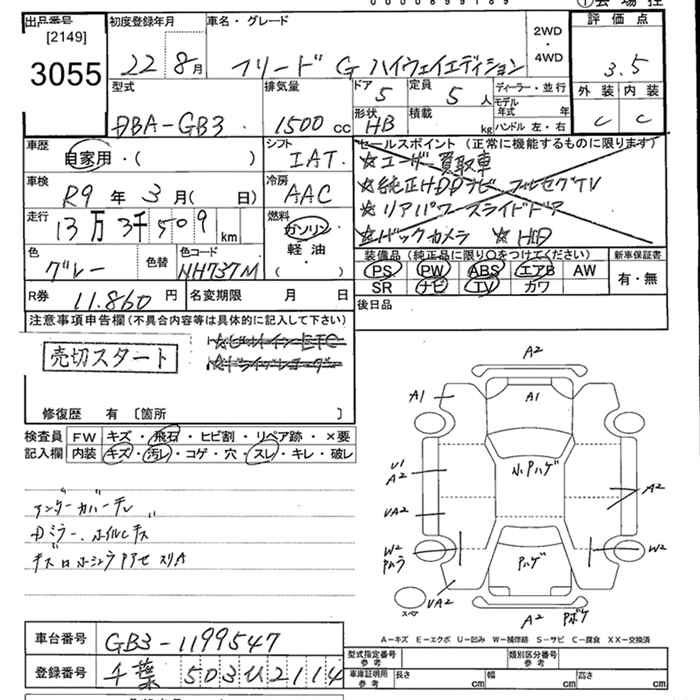 0000899189 ①会場控
出品番号 初度登録年月 車名・グレード 評価点
[2149]
3055
22 8月 フリード G ハイウェイエディション
2WD
4WD
3.5
型式 排気量 ドア 5 定員 5 人 ディーラー・並行
外装 内装
モデル年式 年
DBA-GB3 1500cc 形状 HB 積載 kg ハンドル 左・右
C C
車歴 シフト セールスポイント（正常に機能するものに限ります）
自家用・（ ） IAT.
☆ユーザー買取車
車検 冷房
☆純正HDDナビ フルセグTV
R9年 3月（ 日） AAC
☆リアパワースライドドア
走行 燃料
13万3千509km ガソリン
軽油
（ ）
☆バックカメラ ☆HID
色 色替 色コード
グレー NH737M
装備品（純正品に限り○をつけてください） 新車保証書
PS PW ABS エアB AW
SR ナビ TV カワ
有・無
R券 11.860円 名変期限 月 日 後日品
注意事項申告欄（不具合内容等は具体的に記入して下さい）
売切スタート
☆ビルトインETC
☆ドライブレコーダー
修復歴 有〔箇所 〕
検査員 FW キズ・飛石・ヒビ割・リペア跡・×要
記入欄 内装 キズ・汚レ・コゲ・穴・スレ・キレ・破レ
アンダーカバーナシ
Dミラー、ホイルキズ
A2
A1 A1
U1
A2
小Pハゲ
A2
UA2
W2 Pハゲ W2
Pムラ
スペア
UA2
A2 Pボケ
A－キズ E－エクボ U－凹み W－補修跡 S－サビ C－腐食 XX－交換済
車台番号 GB3-1199547
登録番号 千葉 503ひ2114
型式指定番号 参考 類別区分番号 参考
車庫証明用 参考 長さ cm 幅 cm 高さ cm